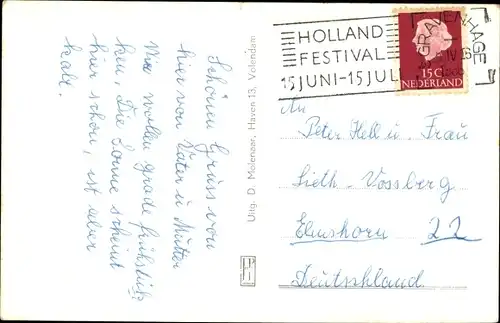 Schönen Gruss von
hier von Vater u Mutter
Wir wollen grade frühstük-
ken, Die Sonne scheint
hier schön, ist aber
kalt.
Uitg. D. Molenaar, Haven 13, Volendam
HOLLAND
FESTIVAL
15 JUNI-15 JULI
GRAVENHAGE
15 C
NEDERLAND
An
Peter Hell u. Frau
Sieth-Vossberg
Elmshorn 22
Deutschland